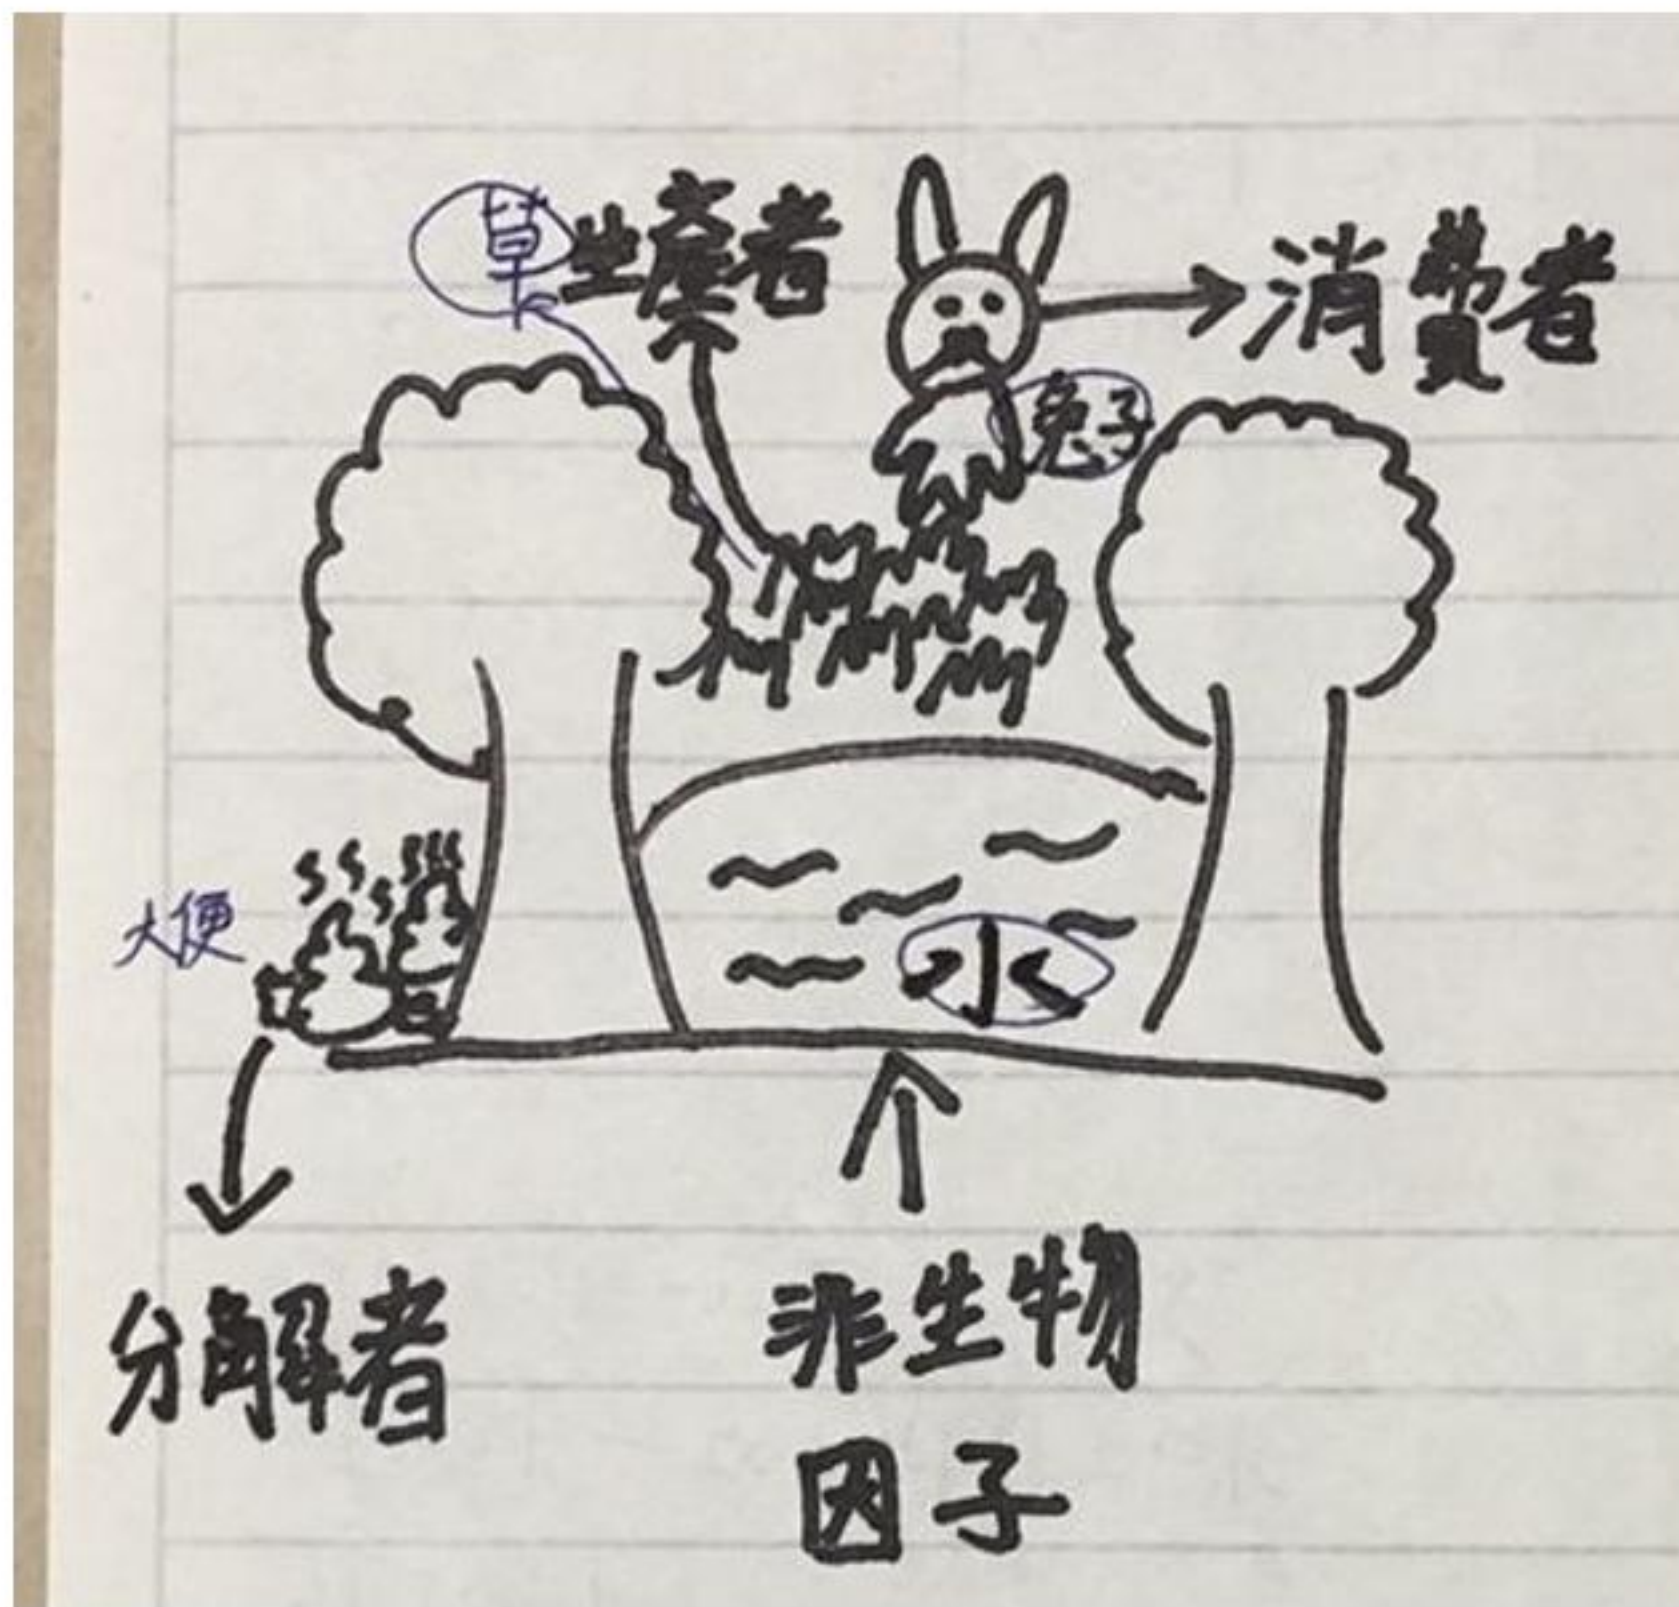 草 生產者
消費者
兔子
大便
水
分解者
非生物
因子